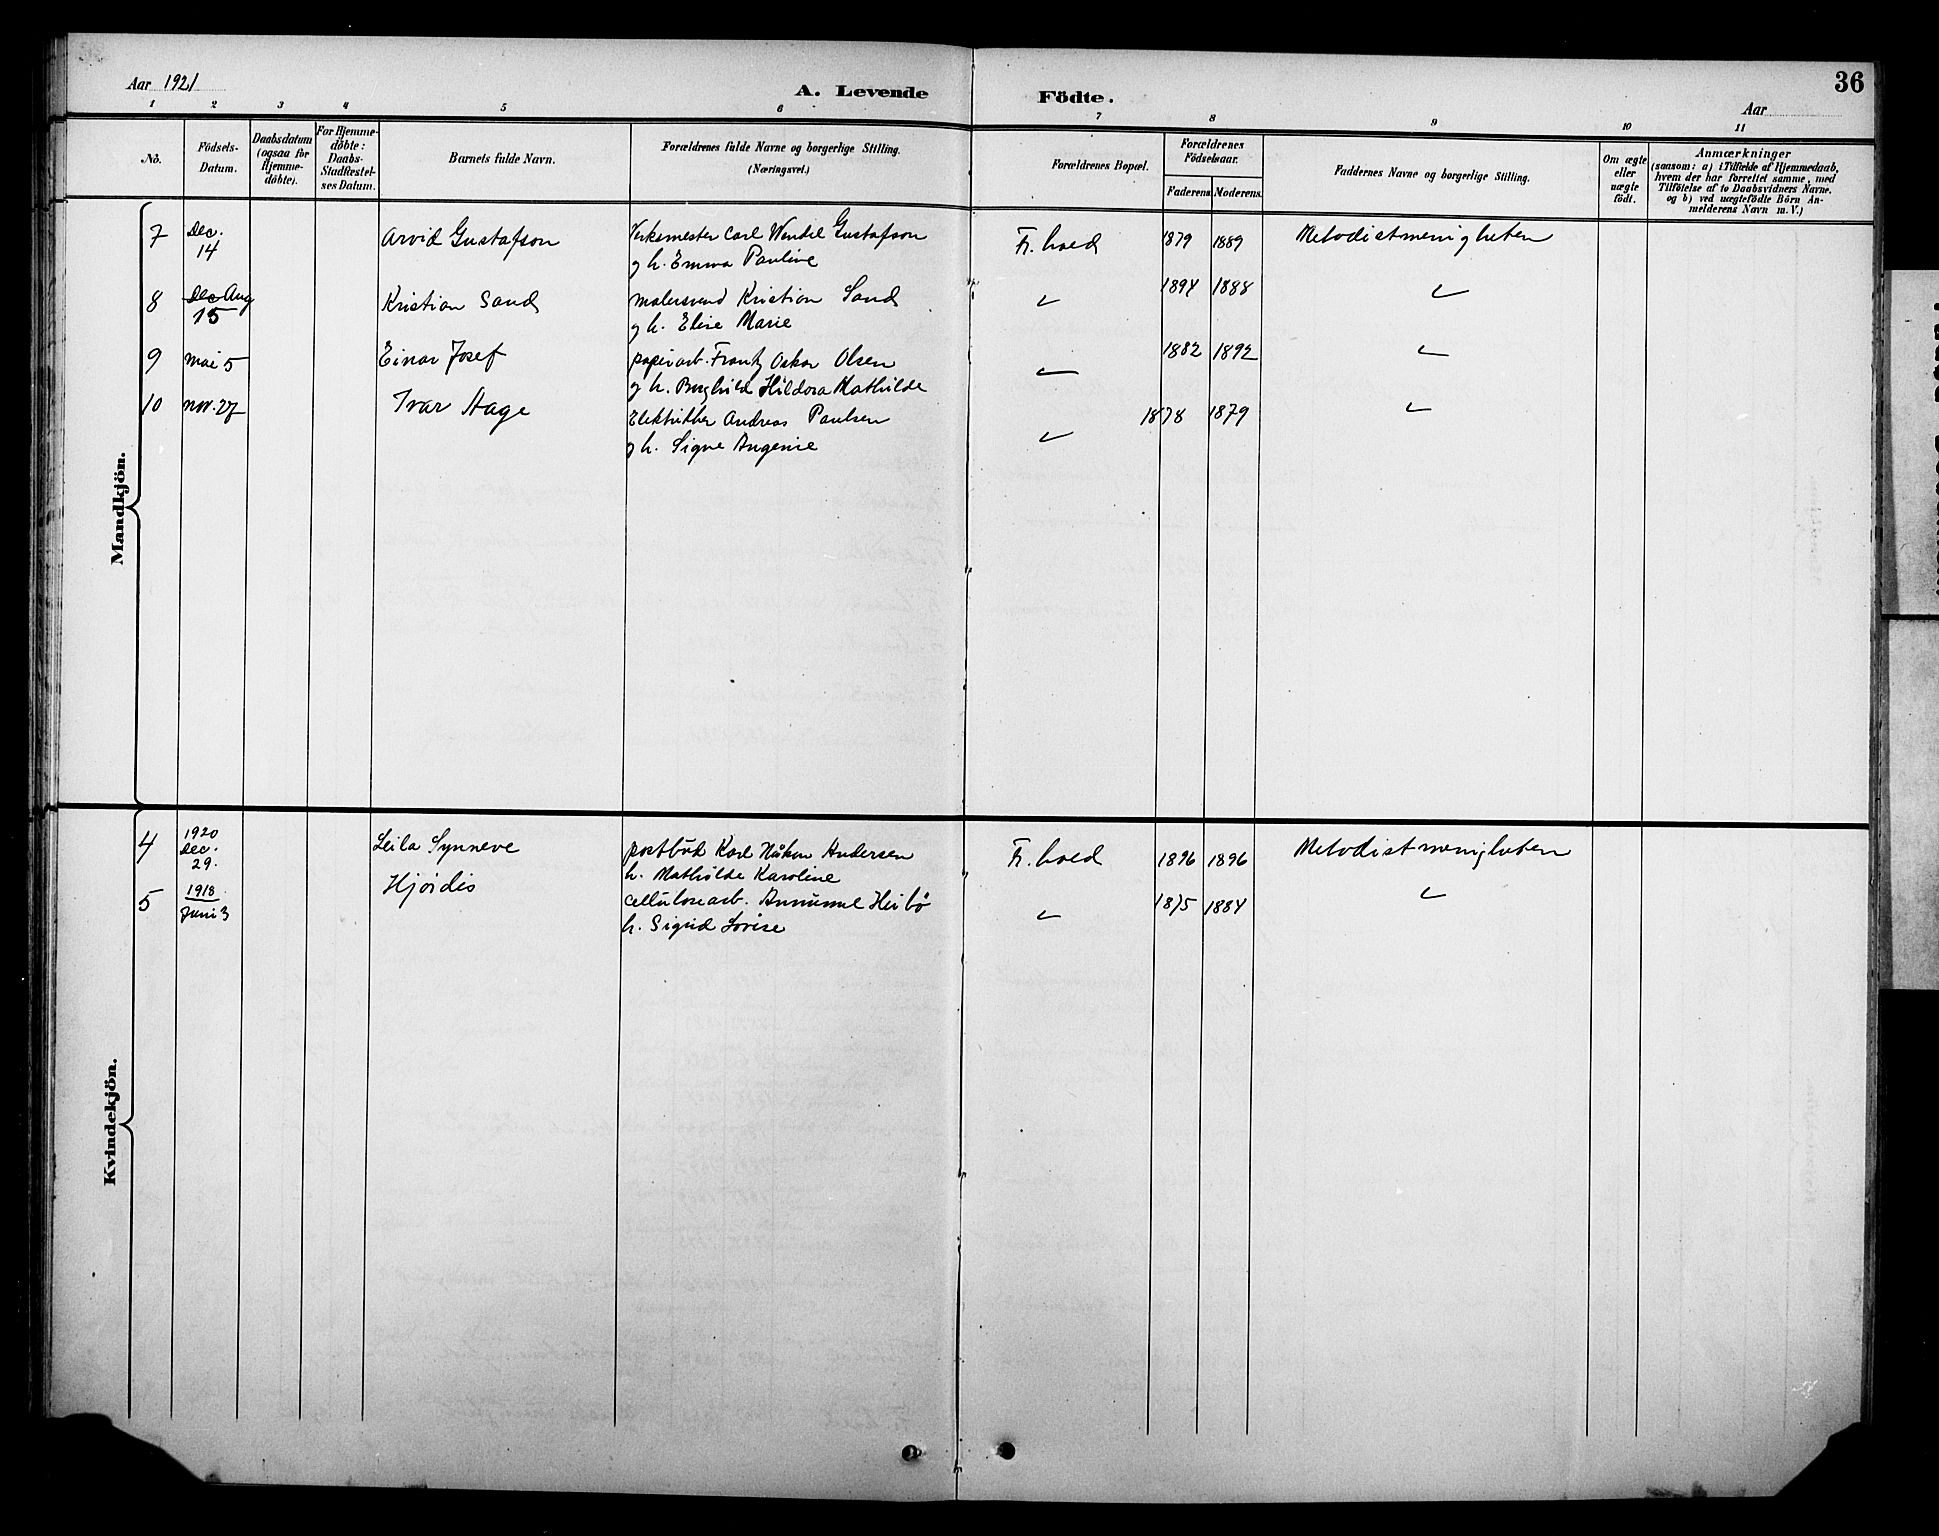 Aar 1921
A. Levende Födte.
36
Aar
1 2 3 4 5 6 7 8 9 10 11
No.
Födsels-
Datum.
Daabsdatum
(ogsaa for
Hjemme-
döbte).
For Hjemme-
döbte:
Daabs-
Stadfæstel-
ses Datum.
Barnets fulde Navn.
Forældrenes fulde Navne og borgerlige Stilling.
(Næringsvei.)
Forældrenes Bopæl.
Forældrenes
Födselsaar.
Faderens. Moderens.
Faddernes Navne og borgerlige Stilling.
Om ægte
eller
uægte
födt.
Anmærkninger
(saasom: a) i Tilfælde af Hjemmedaab,
hvem der har forrettet samme, med
Tilföielse af to Daabsvidners Navne.
og b) ved uægtefödte Börn An-
melderens Navn m. V.)
Mandkjön.
7 Dec. 14 Arvid Gustafson Verksmester Carl Wendel Gustafson Fr.hald 1879 1889 Metodistmenigheten
g h. Emma Pauline
8 Dec Aug 15 Kristian Sand malersvend Kristian Sand 1894 1888
g h. Elise Marie
9 mai 5 Einar Josef papirarb. Frantz Oskar Olsen 1882 1892
g h. Borghild Hildora Mathilde
10 nov. 27 Ivar Hage Elektriker Andreas Paulsen 1878 1879
g h. Signe Angenie
Kvindekjön.
4 1920 Dec. 29. Leila Synneve postbud Karl Håkon Andersen Fr.hald 1896 1896 Metodistmenigheten
h. Mathilde Karoline
5 1918 Juni 3 Hjördis cellulosearb. Heibö 1875 1884
h. Sigrid Lovise